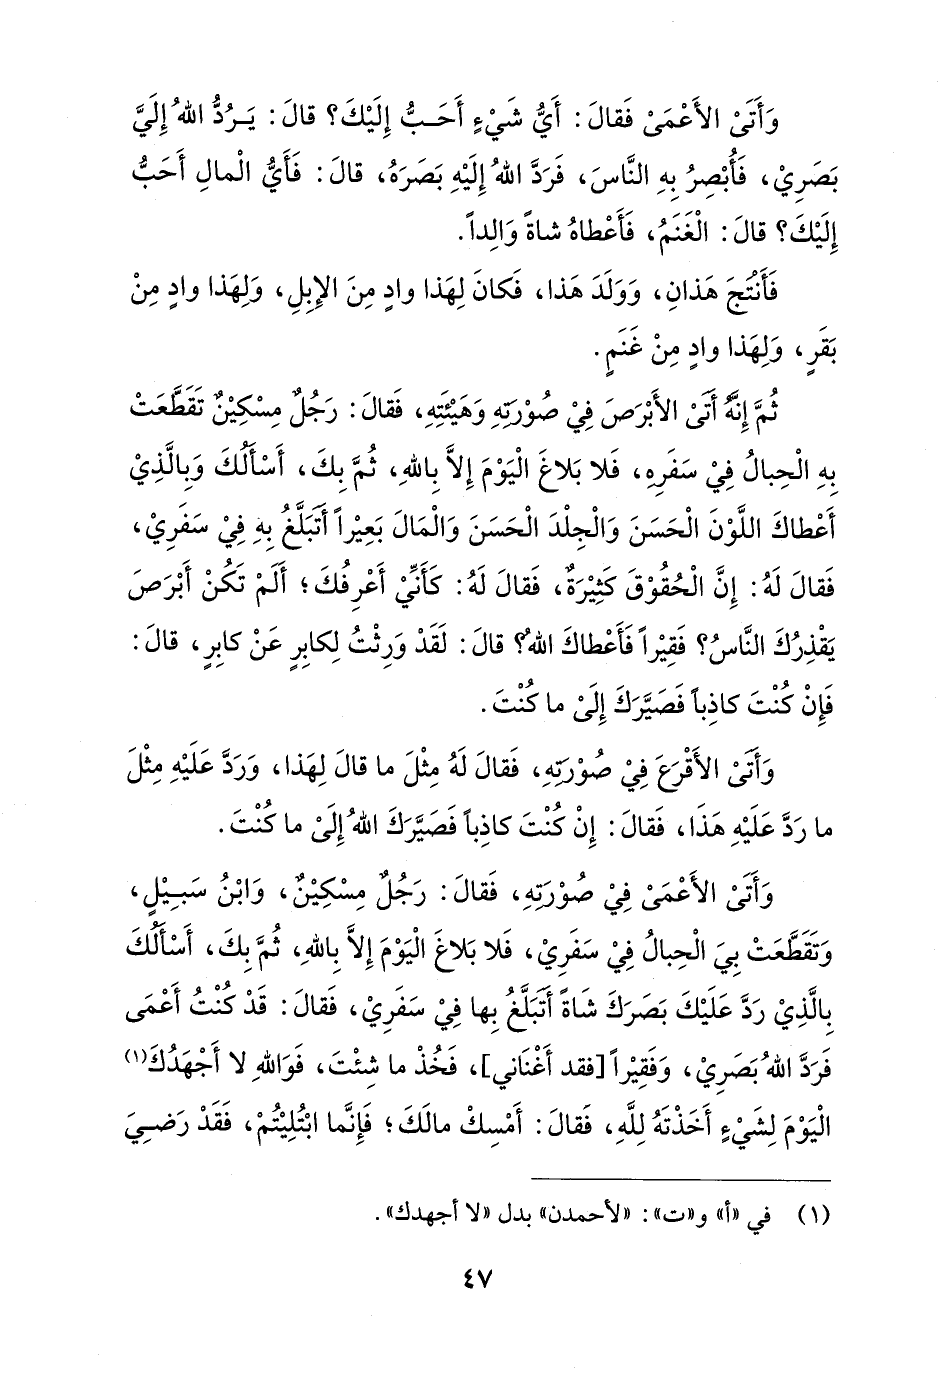 وَأَتَىْ الأَعْمَىْ فَقالَ: أَيُّ شَيْءٍ أَحَـبُّ إِلَيْكَ؟ قالَ: يَـرُدُّ اللهُ إِلَيَّ
بَصَرِيْ، فَأُبْصِرُ بِهِ النَّاسَ، فَرَدَّ اللهُ إِلَيْهِ بَصَرَهُ، قالَ: فَأَيُّ الْمالِ أَحَبُّ
إِلَيْكَ؟ قالَ: الْغَنَمُ، فَأَعْطاهُ شاةً وَالِداً.
فَأَنْتُجَ هَذانِ، وَوَلَدَ هَذا، فَكانَ لِهَذا وادٍ مِنَ الإِبِلِ، وَلِهَذا وادٍ مِنْ
بَقَرٍ، وَلِهَذا وادٍ مِنْ غَنَمٍ.
ثُمَّ إِنَّهُ أَتَىْ الأَبْرَصَ فِيْ صُوْرَتِهِ وَهَيْئَتِهِ، فَقالَ: رَجُلٌ مِسْكِيْنٌ تَقَطَّعَتْ
بِهِ الْحِبالُ فِيْ سَفَرِهِ، فَلا بَلاغَ الْيَوْمَ إِلاَّ بِاللهِ، ثُمَّ بِكَ، أَسْأَلُكَ وَبِالَّذِيْ
أَعْطاكَ اللَّوْنَ الْحَسَنَ وَالْجِلْدَ الْحَسَنَ وَالْمَالَ بَعِيْراً أَتَبَلَّغُ بِهِ فِيْ سَفَرِيْ،
فَقالَ لَهُ: إِنَّ الْحُقُوْقَ كَثِيْرَةٌ، فَقالَ لَهُ: كَأَنِّيْ أَعْرِفُكَ؛ أَلَمْ تَكُنْ أَبْرَصَ
يَقْذِرُكَ النَّاسُ؟ فَقِيْراً فَأَعْطاكَ اللهُ؟ قالَ: لَقَدْ وَرِثْتُ لِكابِرٍ عَنْ كابِرٍ، قالَ:
فَإِنْ كُنْتَ كاذِباً فَصَيَّرَكَ إِلَىْ ما كُنْتَ.
وَأَتَىْ الأَقْرَعَ فِيْ صُوْرَتِهِ، فَقالَ لَهُ مِثْلَ ما قالَ لِهَذا، وَرَدَّ عَلَيْهِ مِثْلَ
ما رَدَّ عَلَيْهِ هَذَا، فَقالَ: إِنْ كُنْتَ كاذِباً فَصَيَّرَكَ اللهُ إِلَىْ ما كُنْتَ.
وَأَتَىْ الأَعْمَىْ فِيْ صُوْرَتِهِ، فَقالَ: رَجُلٌ مِسْكِيْنٌ، وَابْنُ سَبِـيْلٍ،
وَتَقَطَّعَتْ بِيَ الْحِبالُ فِيْ سَفَرِيْ، فَلا بَلاغَ الْيَوْمَ إِلاَّ بِاللهِ، ثُمَّ بِكَ، أَسْأَلُكَ
بِالَّذِيْ رَدَّ عَلَيْكَ بَصَرَكَ شَاةً أَتَبَلَّغُ بِها فِيْ سَفَرِيْ، فَقالَ: قَدْ كُنْتُ أَعْمَى
فَرَدَّ اللهُ بَصَرِيْ، وَفَقِيْراً [فقد أَغْنَاني]، فَخُذْ ما شِئْتَ، فَوَاللهِ لا أَجْهَدُكَ(١)
الْيَوْمَ لِشَيْءٍ أَخَذْتَهُ لِلَّهِ، فَقالَ: أَمْسِكْ مالَكَ؛ فَإِنَّما ابْتُلِيْتُمْ، فَقَدْ رَضِـيَ
(١) في «أ» و«ت»: «لأحمدن» بدل «لا أجهدك».
٤٧